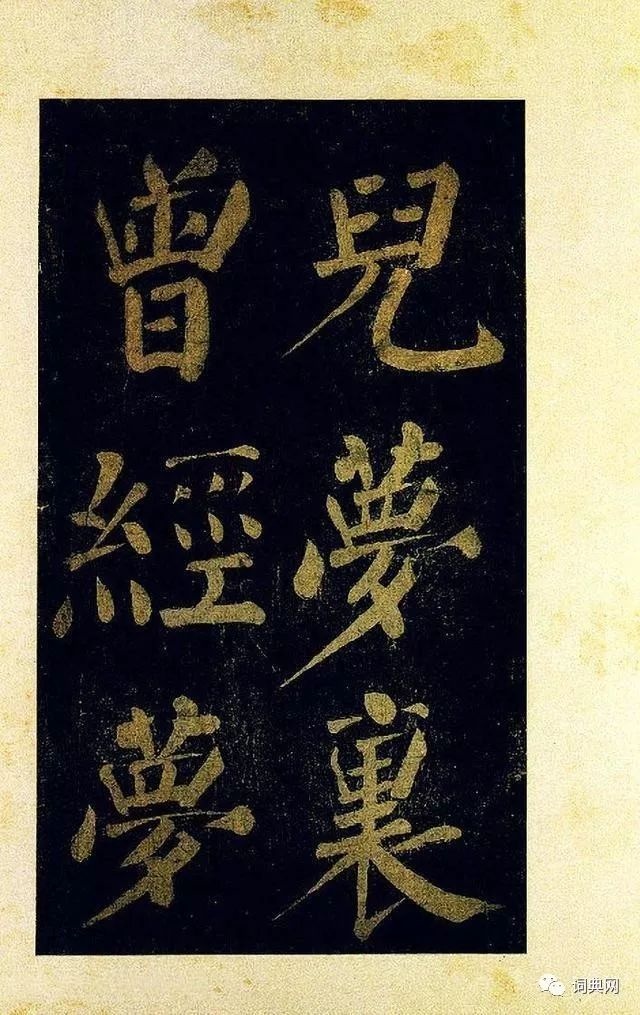 兒夢裏
曾經夢
词典网